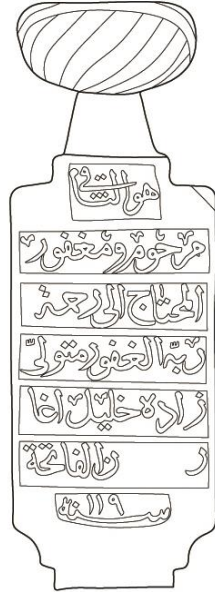 هو الباقي
مرحوم و مغفور
المحتاج الى رحمة
ربه الغفور متولي
زاده خليل اغا
ر زا الفاتحة
سنة ١١٩